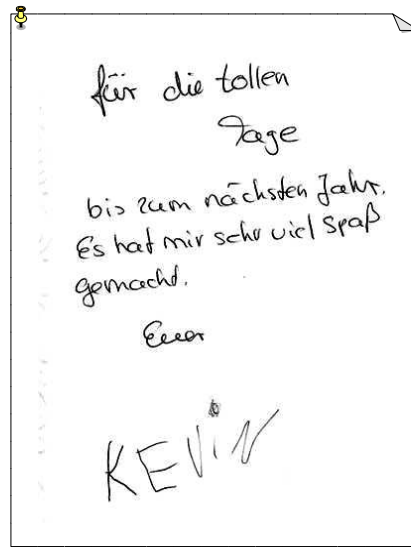 für die tollen
Tage
bis zum nächsten Jahr.
Es hat mir sehr viel Spaß
gemacht.
Euer
KEViN